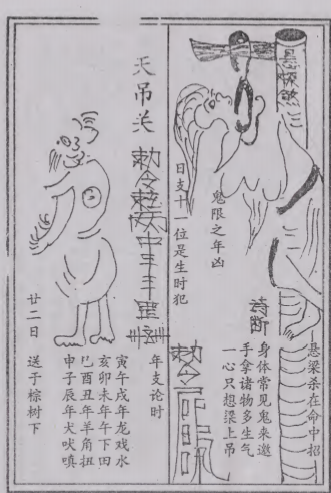 悬梁煞
悬梁杀在命中招
诗断
身体常见鬼来邀
手拿诸物多生气
一心只想梁上吊
鬼限之年凶
日支十一位是生时犯
敕令
天吊关
敕令
年支论时
寅午戌年龙戏水
亥卯未年午下田
巳酉丑年羊角扭
申子辰年犬吠嗔
廿二日
送于棕树下